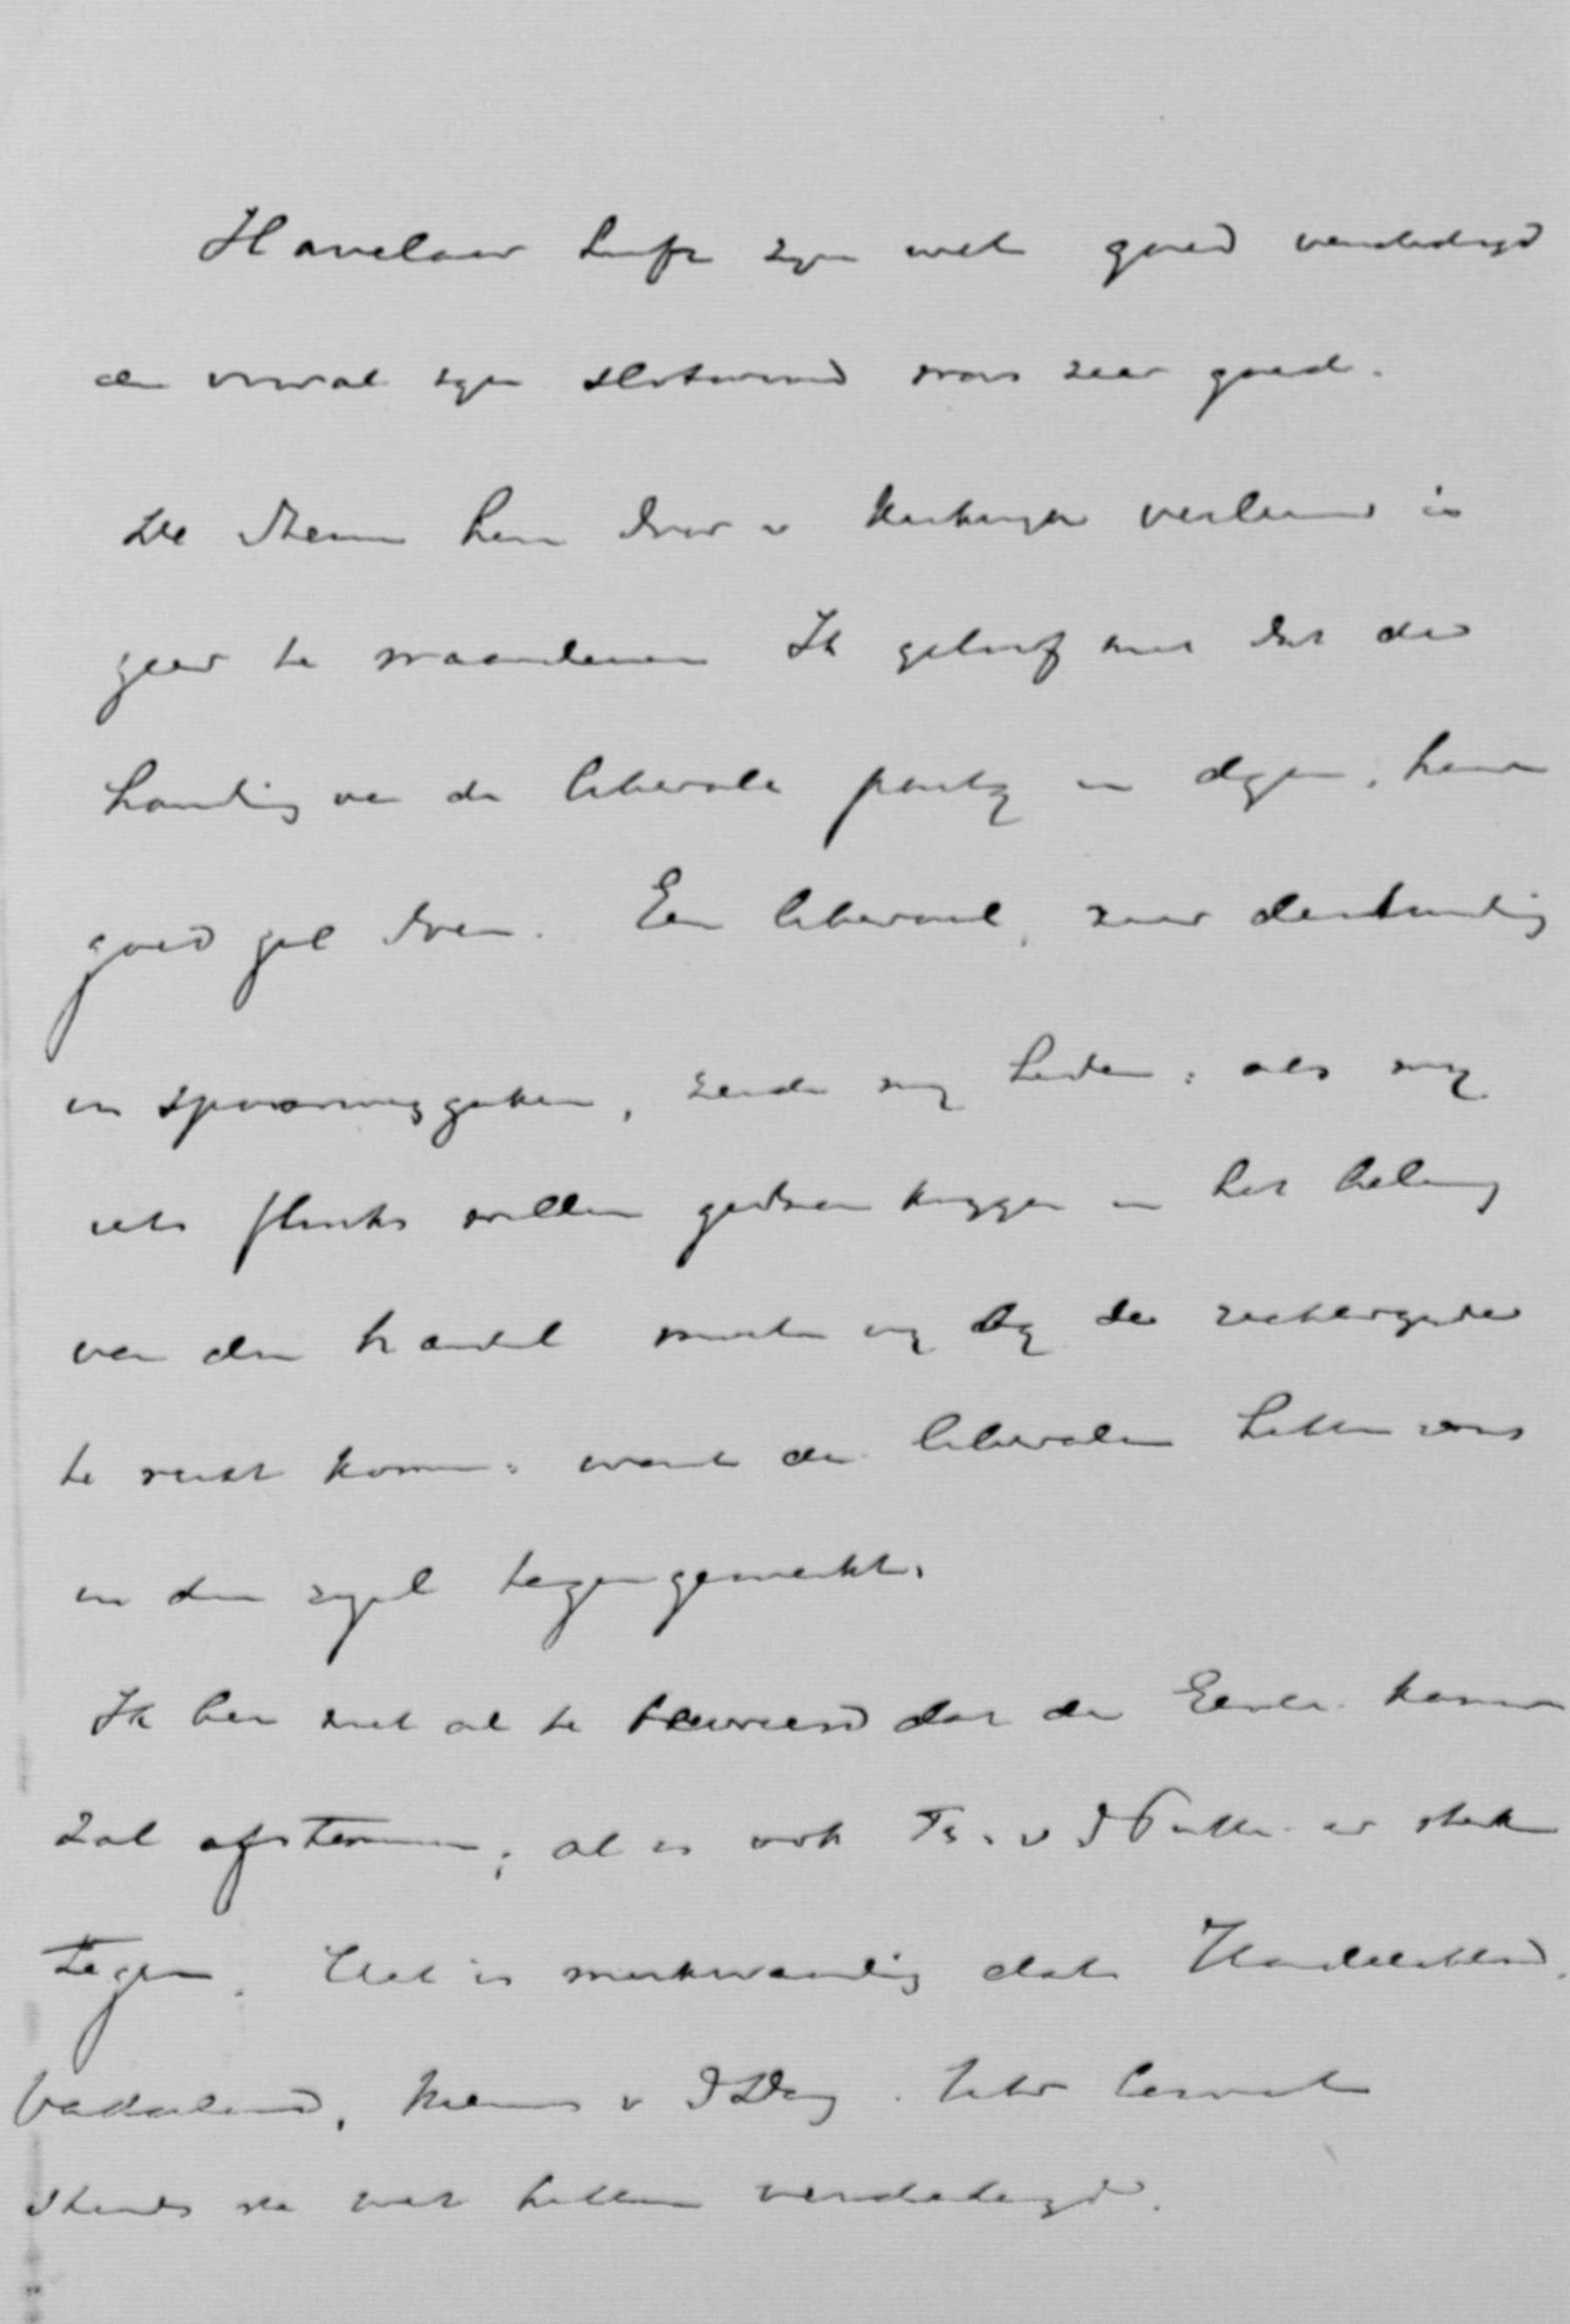 Havelaar heeft zyn wet goed verdedigd
en vooral zyn slotwoord was zeer goed.
De stem hem door v Karnebeek verleend is
zeer te waardeeren Ik geloof niet dat die
houding van de liberale party in dezen, haar
goed zal doen. Een liberaal, zeer deskundig
in spoorwegzaken, zeide my heden: als wy
iets flinks willen gedaan krygen in het belang
van den handel moeten wy by de rechterzyde
te recht komen: want de liberalen hebben ons
in den regel tegengewerkt.
Ik ben niet al te bevreesd dat de Eerste Kamer
zal afstemmen; al is ook Fr. v d Putte er sterk
tegen. Het is merkwaardig dat Handelsblad,
Vaderland, Nieuws v d Dag.
steeds de wet hebben verdedigd.